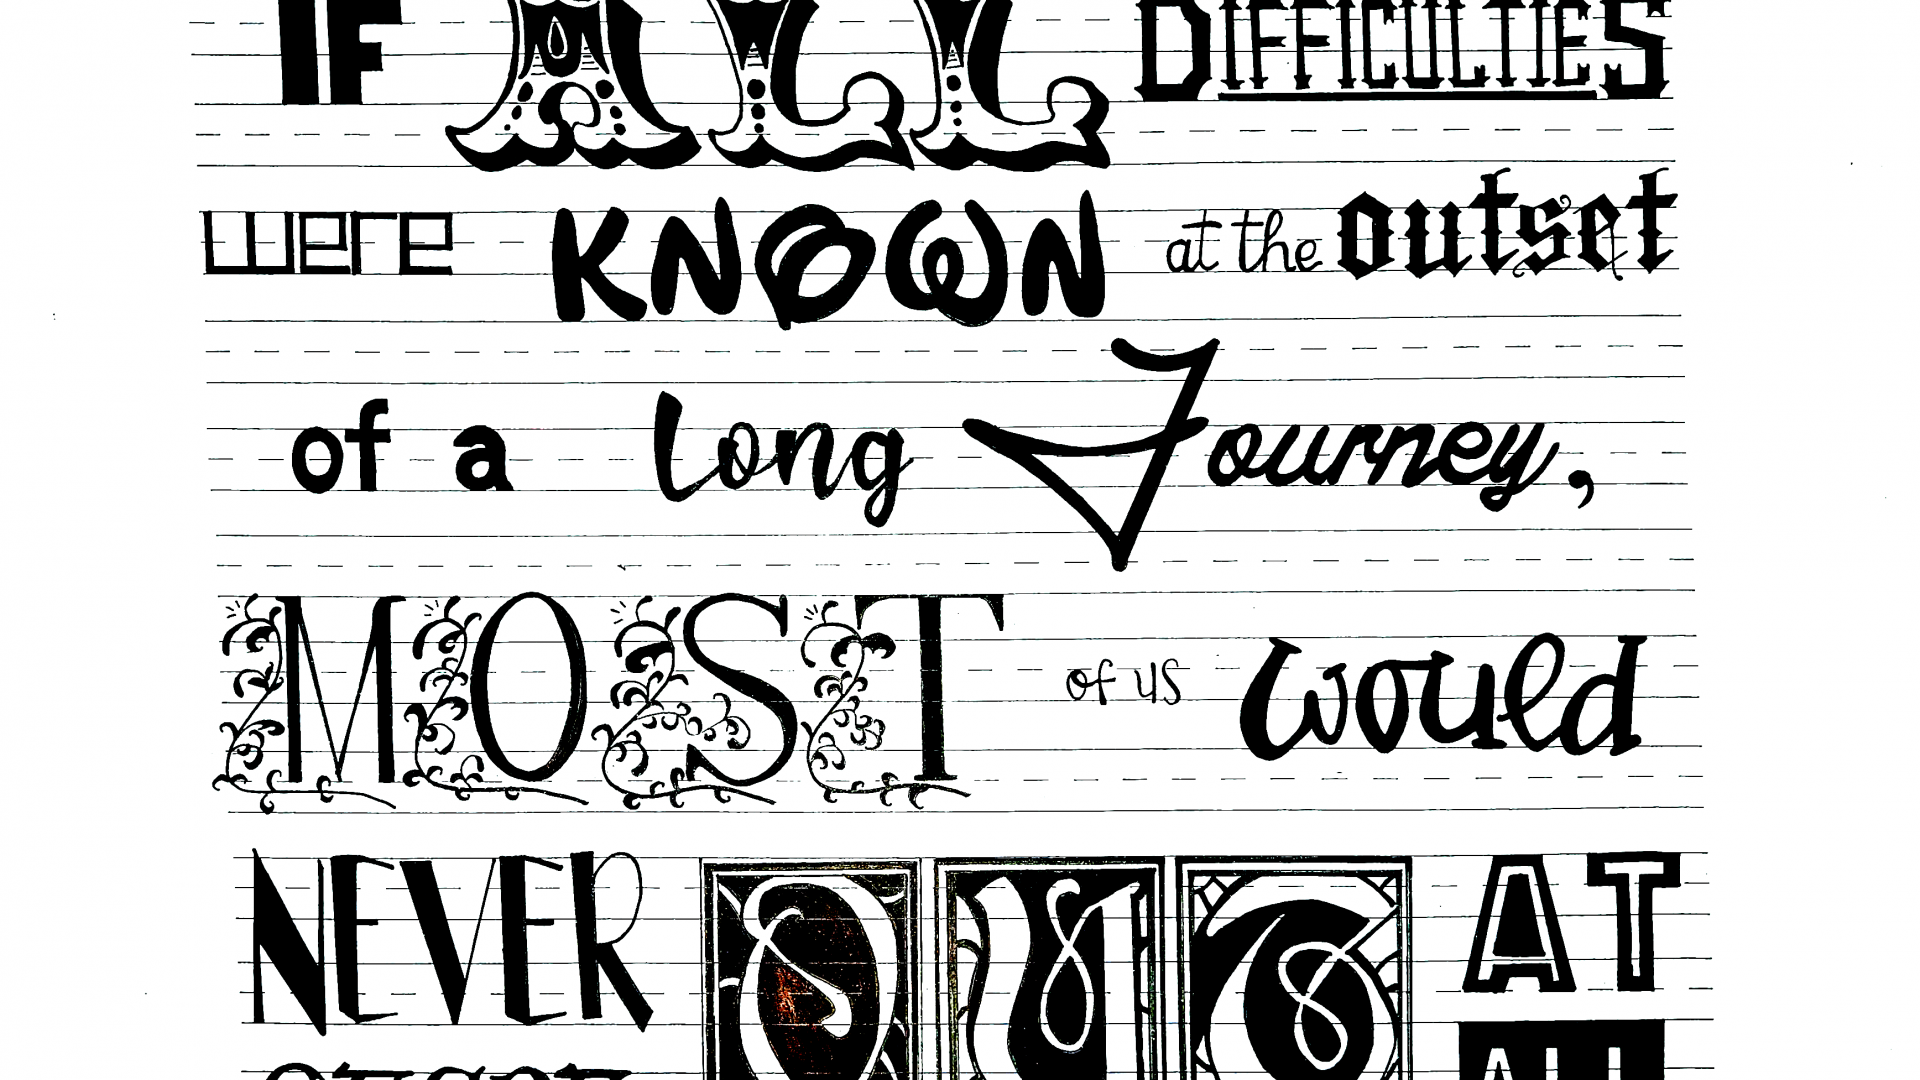 IF ALL DIFFICULTIES
were KNOWN at the outset
of a long Journey,
MOST of us would
NEVER OUT AT